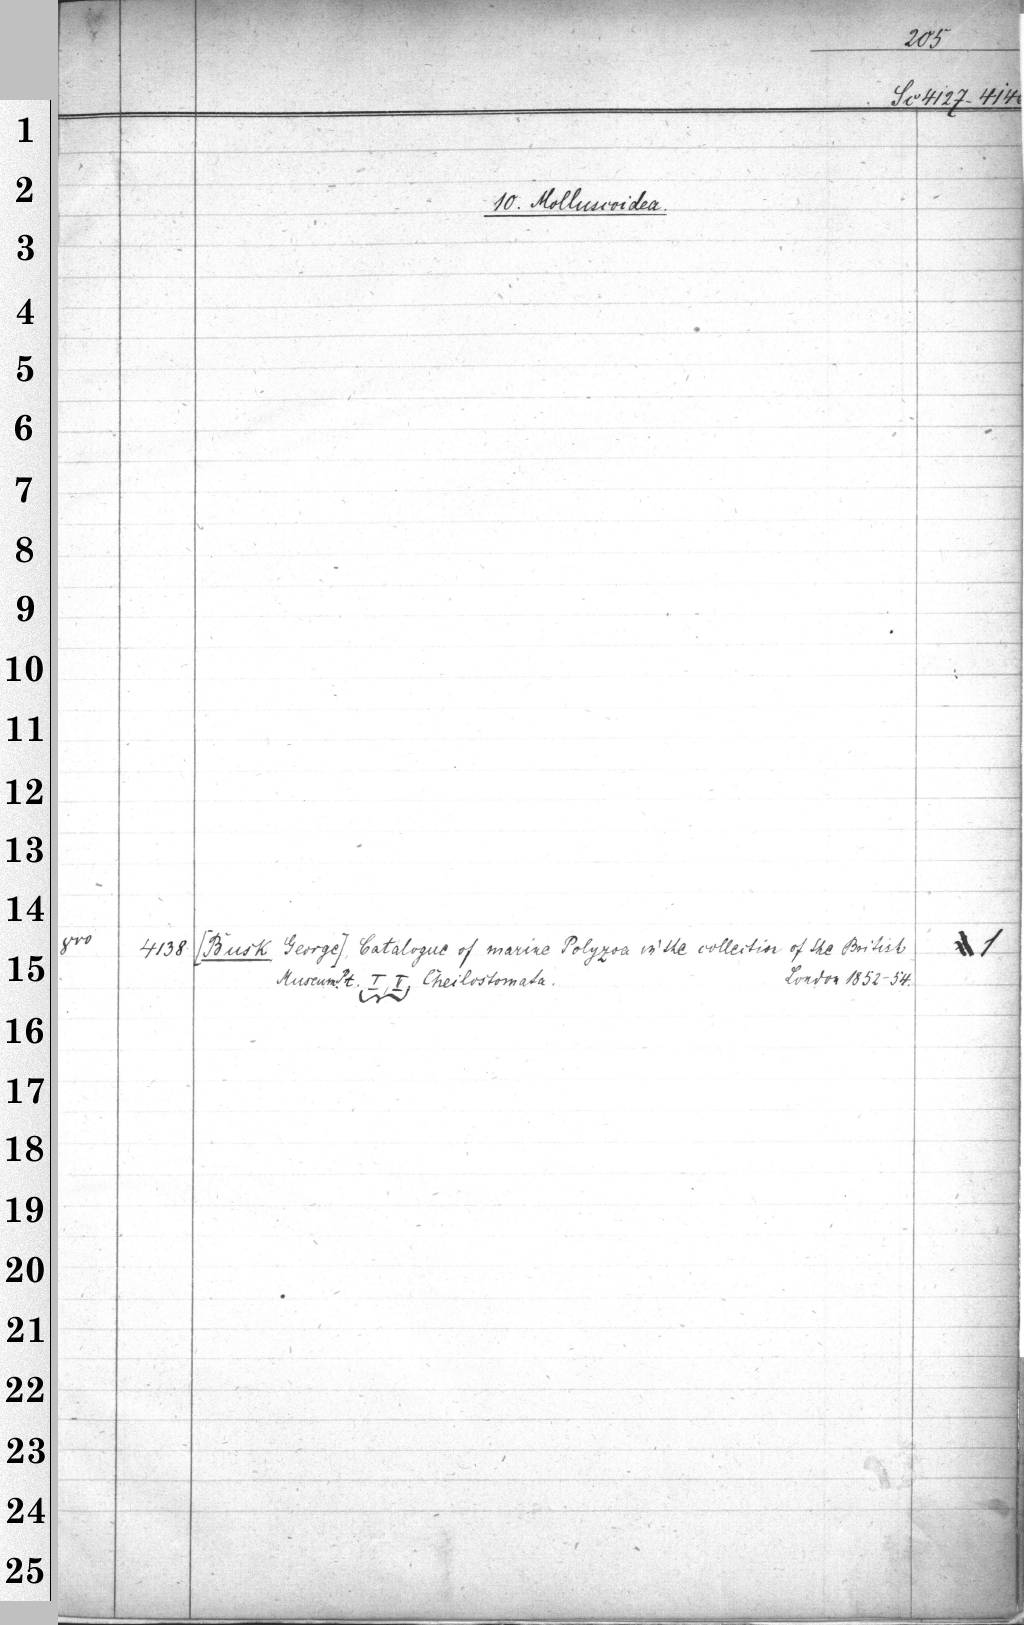 205
Sc 4127-414
1
2
10. Molluscoidea.
3
4
5
6
7
8
9
10
11
12
13
14
8vo 4138 [Busk George]. Catalogue of marine Polyzoa in the collection of the British 1
15
Museum. Pt. I, II, Cheilostomata. London 1852-54.
16
17
18
19
20
21
22
23
24
25